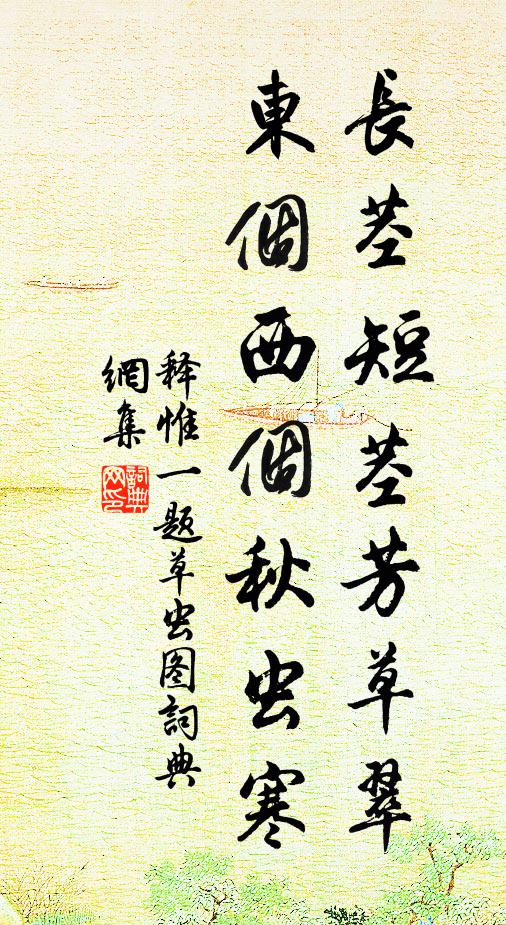 長茎短茎芳草翠
東個西個秋虫寒
释惟一题草虫图詞典
網集
詞典
网印